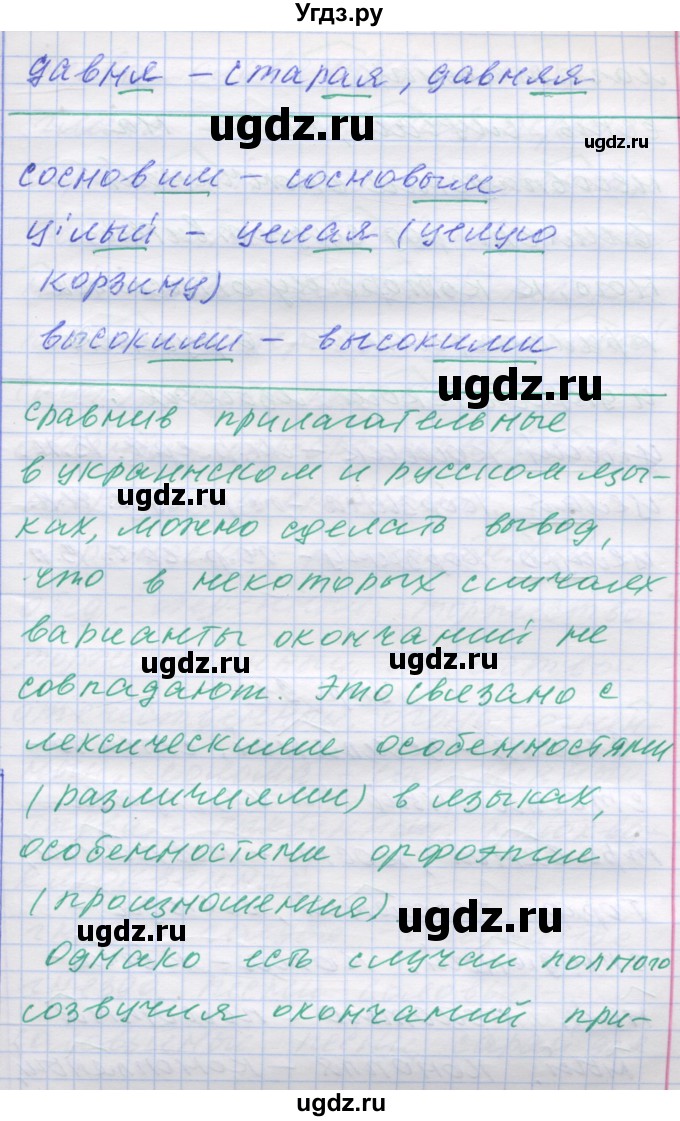 Угдз.ру
давня – старая, давняя
ugdz.ru
ugdz.ru
сосновим – сосновым
цілый – целая (целую
корзину)
высокими – высокими
ugdz.ru
сравнив прилагательные
в украинском и русском язы-
ugdz.ru
ках, можно сделать вывод,
что в некоторых случаях
варианты окончаний не
ugdz.ru
ugdz.ru
совпадают. Это связано с
лексическими особенностями
(различиями) в языках,
ugdz.ru
особенностями орфоэпии
(произношения)
ugdz.ru
ugdz.ru
Однако есть случаи полного
созвучия окончаний при-
ugdz.ru